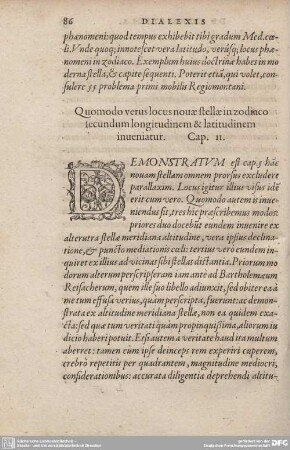 86 DIALEXIS
phænomeni: quod tempus exhibebit tibi gradum Med. cœ-
li. Vnde quoq; innotescet vera latitudo, verúsq; locus phæ-
nomeni in zodiaco. Exemplum huius doctrinæ habes in mo-
derna stella, & capite sequenti. Poterit etiā, qui volet, con-
sulere 55 problema primi mobilis Regiomontani.
Quomodo verus locus nouæ stellæ in zodiaco
secundum longitudinem & latitudinem
inueniatur. Cap. 11.
DEMONSTRATVM est cap. 5 hāc
nouam stellam omnem prorsus excludere
parallaxim. Locus igitur illius visus idē
erit cum vero. Quomodo autem is inue-
niendus sit, tres hic præscribemus modos:
priores duo docebūt eundem inuenire ex
alterutra stellæ meridiana altitudine, vera ipsius declina-
tione, & puncto mediationis cœli: tertius verò eundem in-
quiret ex illius ad vicinas sibi stellas distantia. Priorum mo-
dorum alterum perscripseram iam antè ad Bartholomæum
Reisacherum, quem ille suo libello adiunxit, sed obiter ea à
me tum effusa verius, quàm perscripta, fuerunt: ac demon-
strata ex altitudine meridiana stellæ, non ea quidem exa-
cta: sed quæ tum veritati quàm propinquissima, aliorum iu-
dicio haberi potuit. Etsi autem à veritate haud ita multum
aberret: tamen cum ipse deinceps rem experiri cuperem,
crebrò repetitis per quadrantem, magnitudine mediocri,
considerationibus: accurata diligentia deprehendi altitu-